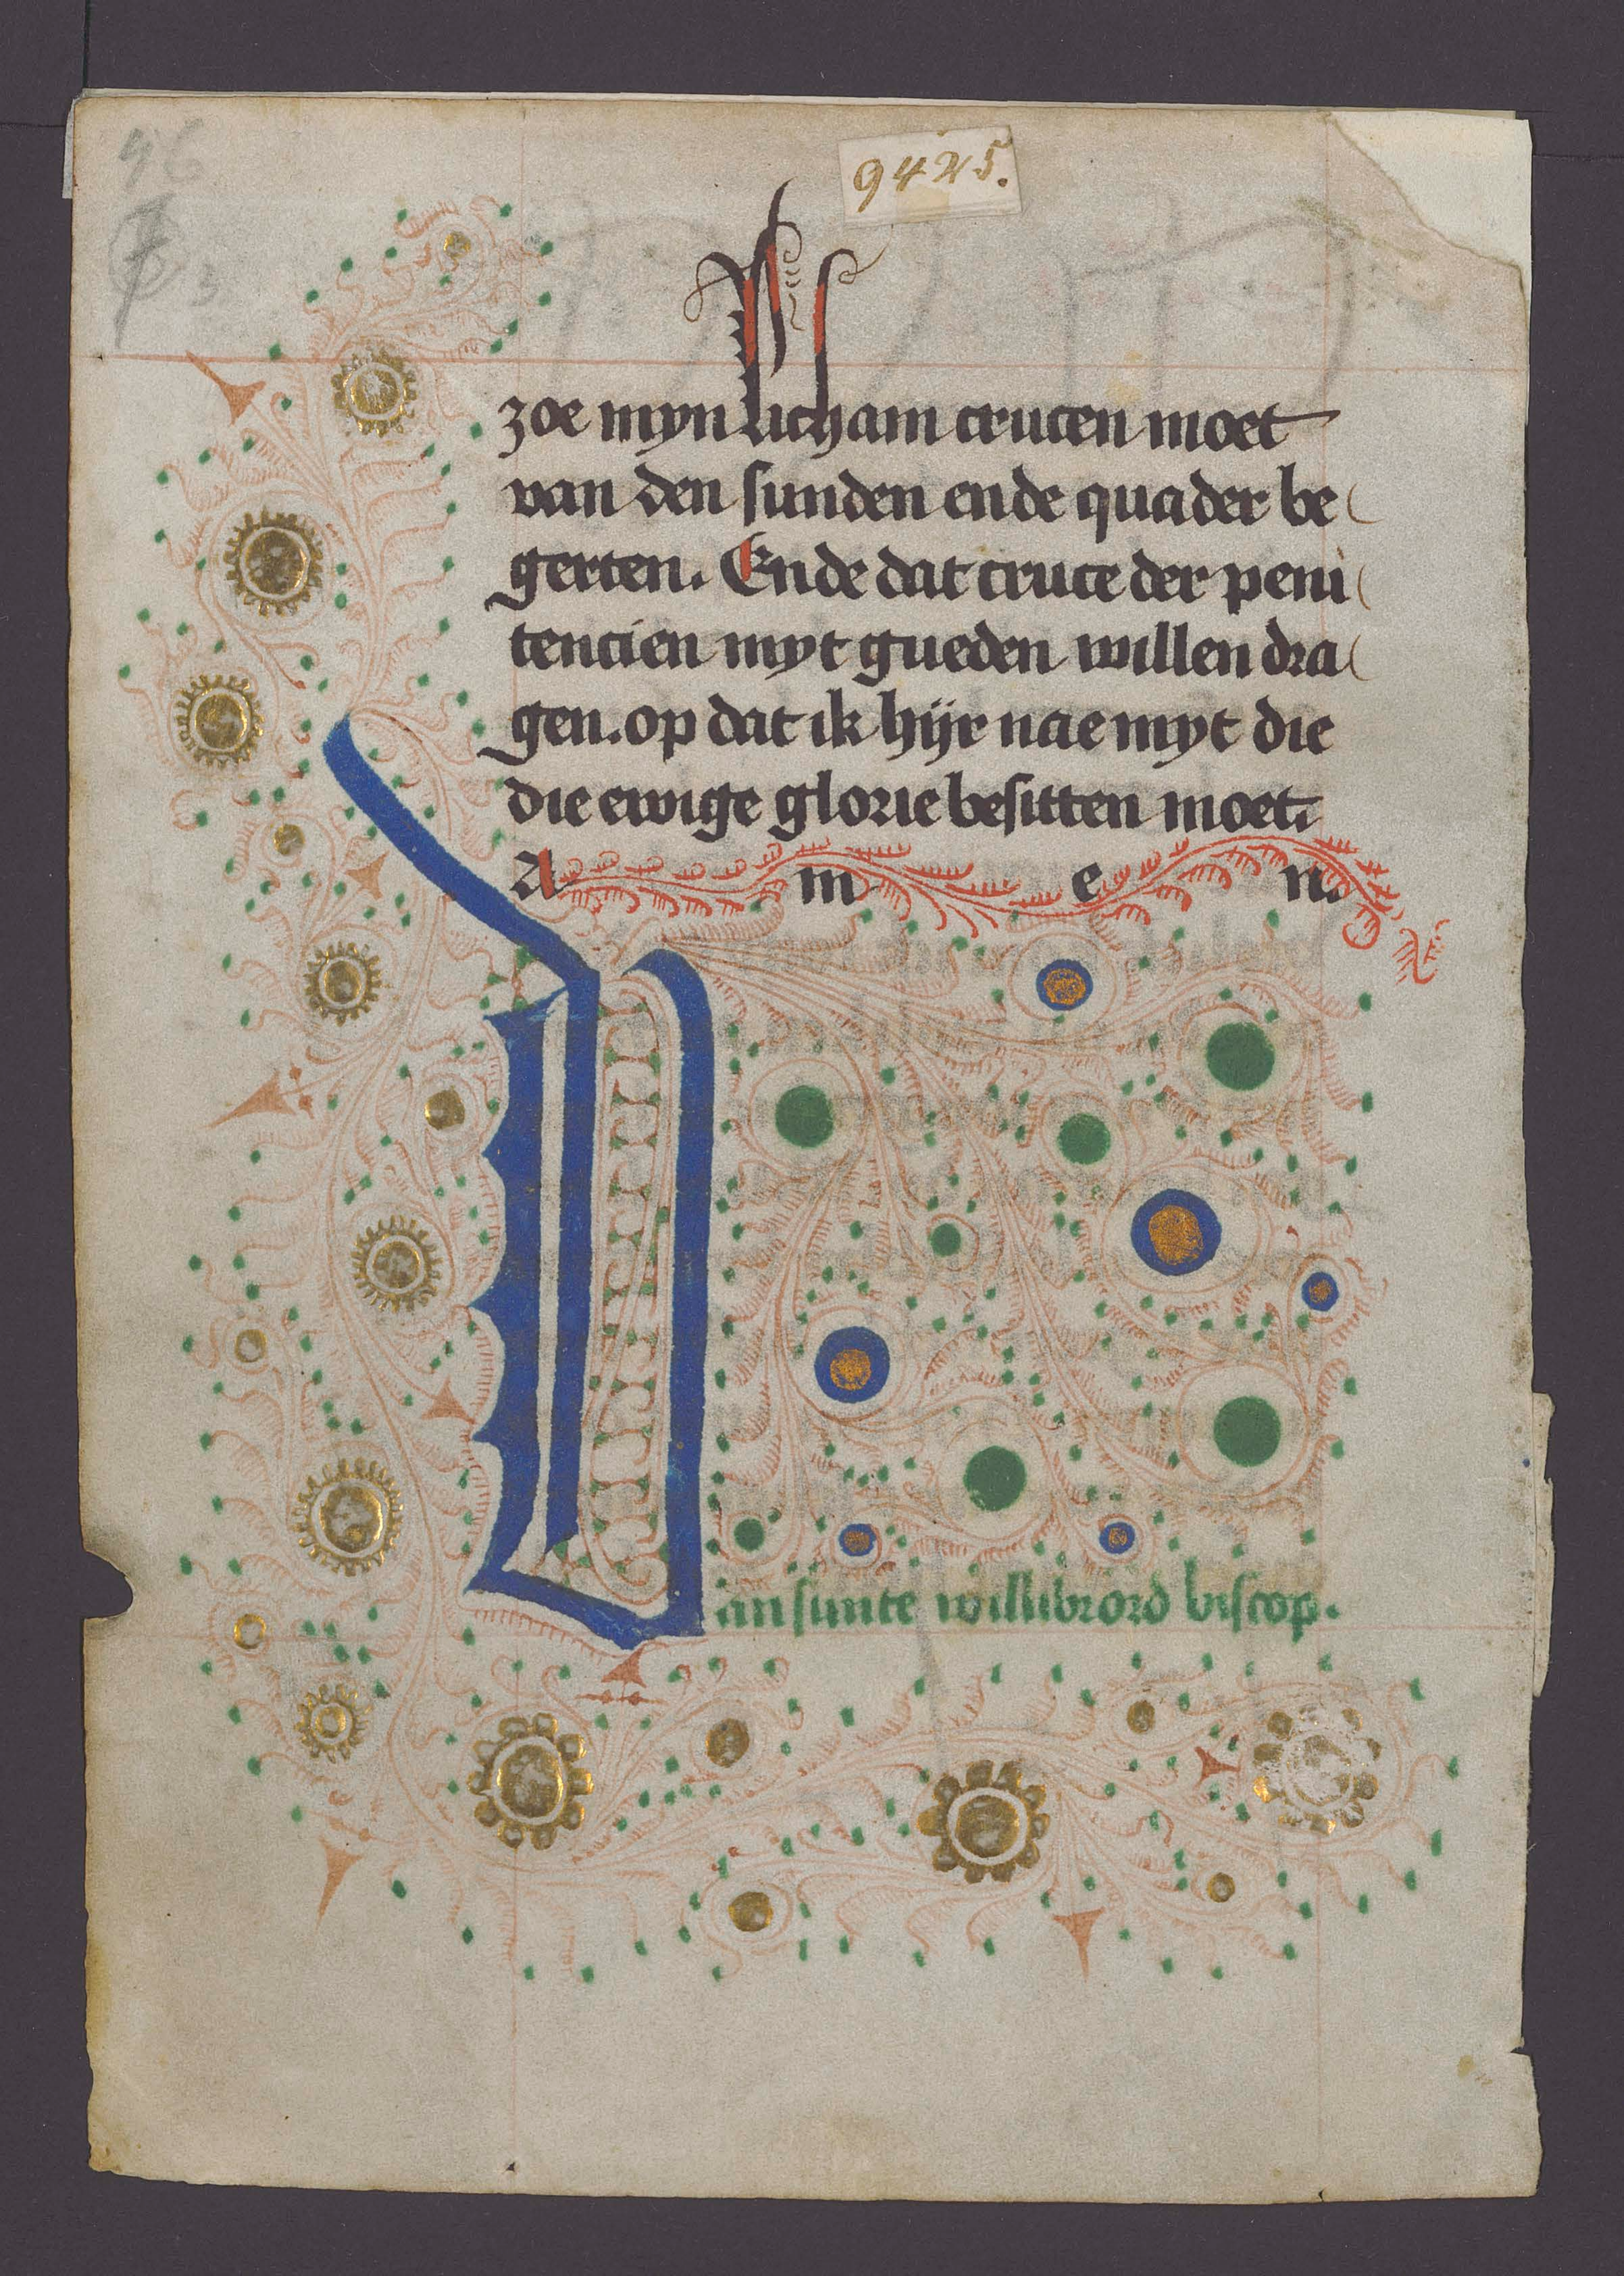 46
9425.
3
zoe myn licham crucen moet
van den sunden ende quader be
gerten. Ende dat cruce der peni
tencien myt gueden willen dra
gen. op dat ik hijr nae myt die
die ewige glorie besitten moet.
A m e n.
Van sunte willibrord biscop.